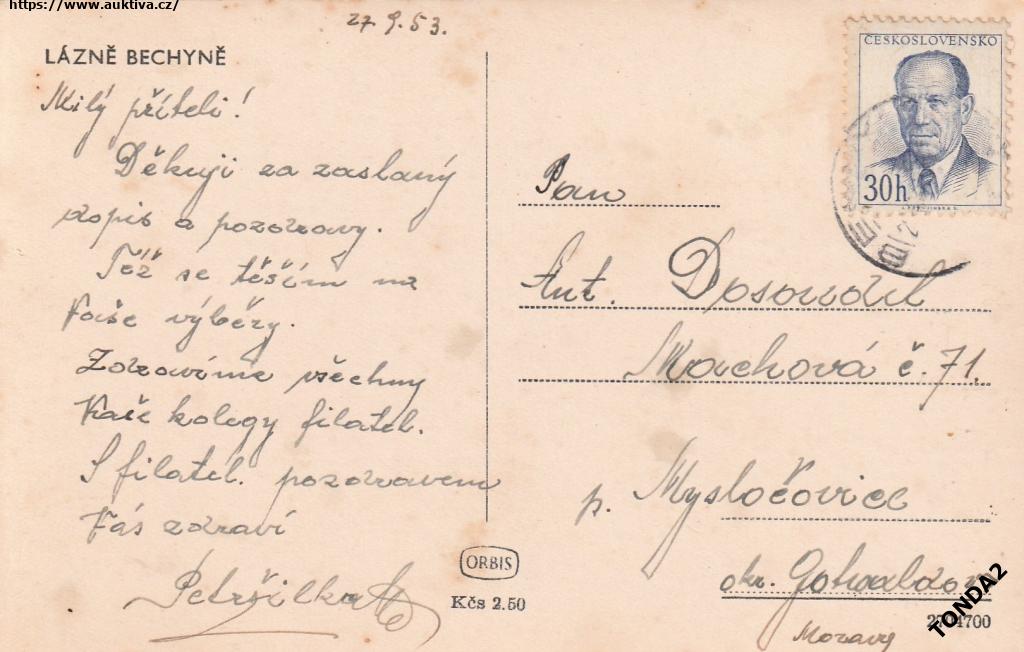 https://www.auktiva.cz/
27.9.53.
LÁZNĚ BECHYNĚ
Milý příteli!
Děkuji za zaslaný
dopis a pozdravy.
Též se těším na
Vaše výběry.
Zdravíme všechny
Vaše kolegy filatel.
S filatel. pozdravem
Vás zdraví
Petržilka
ORBIS
Kčs 2.50
ČESKOSLOVENSKO
30h
Pan
Ant. Dosoudil
Machová č. 71.
p. Mysločovice
okr. Gotwaldov
Moravy
TONDA2